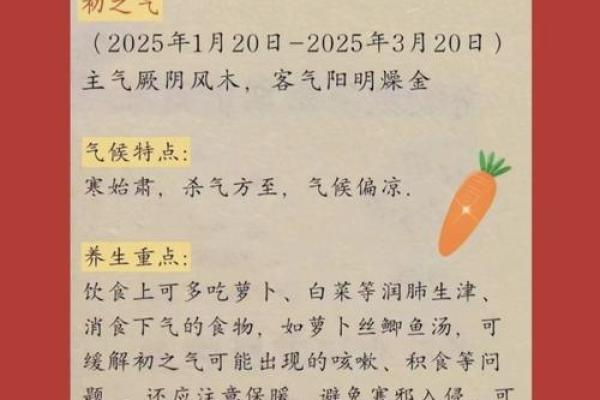 初之气
（2025年1月20日-2025年3月20日）
主气厥阴风木，客气阳明燥金
气候特点：
寒始肃，杀气方至，气候偏凉.
养生重点：
饮食上可多吃萝卜、白菜等润肺生津、
消食下气的食物，如萝卜丝鲫鱼汤，可
缓解初之气可能出现的咳嗽、积食等问
题。 还应注意保暖，避免寒邪入侵，可